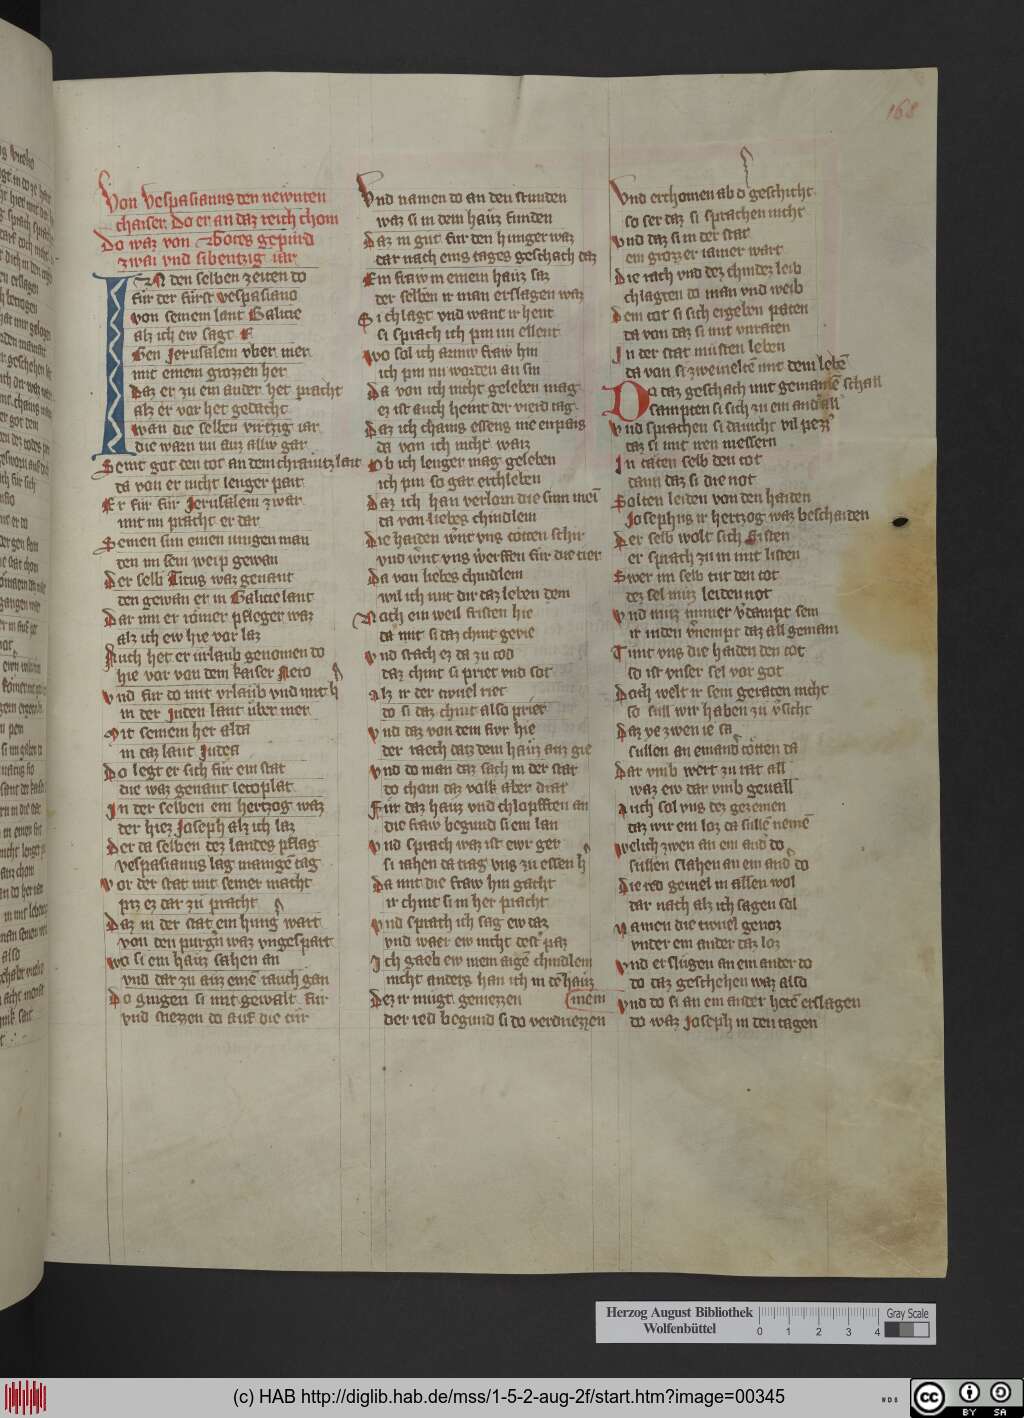 168
Von Vespasianus den newnten
chaiser. Do er an daz reich chom
Do waz von Gotes gepurd
zwai vnd sibentzig iar
IN den selben zeiten do
fur der furst vespasiano
von seinem lant Galicie
alz ich ew sagt E
Gen Jerusalem vber mer
mit einem grozzen her
Daz er zu ein ander het pracht
alz er vor het gedacht
wan die selben virtzig iar
die warn nu auz allw gar
Seint got den tot an dem chrawtz lait
da von er nicht lenger pait
Er fur fur Jerusalem zwar
mit im pracht er dar
Seinen sun einen iungen man
den im sein weip gewan
Der selb Titus waz genant
den gewan er in Galicie lant
Dar inn er romer pfleger waz
alz ich ew hie vor laz
Auch het er urlaub genomen do
hie vor von dem kaiser Nero
vnd fur do mit vrlaub vnd mit h
in der Juden lant uber mer
Mit seinem her alda
in daz lant Judea
Do legt er sich fur ein stat
die waz genant lecoplat
In der selben ein hertzog waz
der hiez Joseph alz ich laz
Der da selben dez landes pflag
vespasianus lag manigē tag
vor der stat mit seiner macht
piz ez dar zu pracht
Daz in der stat ein hung wart
von den purgn waz vngespart
wo si ein hauz sahen an
vnd dar zu auz einē rauch gan
Do gingen si mit gewalt fur
vnd stiezzen do auf die tur
Vnd namen do an den stunden
waz si in dem hauz funden
Daz in gut fur den hunger waz
dar nach eins tages geschach daz
Ein fraw in einem hauz saz
der selben ir man erslagen waz
Si chlagt vnd want ir hent
si sprach ich pin im ellent
wo sol ich armiv fraw hin
ich pin nu worden an sin
Da von ich nicht geleben mag
ez ist auch heint der vierd tag
Daz ich chains essens nie enpais
da von ich nicht waiz
Ob ich lenger mag geleben
ich pin so gar erchleben
Daz ich han verlorn die sinn mei
da von liebes chindlein
Die haiden wnt vns totten schir
vnd wnt vns werffen fur die tier
Da von liebes chindlein
wil ich mit dir daz leben dein
Noch ein weil fristen hie
da mit si daz chint gevie
vnd stach ez da zu tod
daz chint si priet vnd sot
Alz ir der tiwuel riet
do si daz chint also prier
vnd daz von dem fivr hie
der rach datz dem hauz auz gie
vnd do man daz sach in der stat
do chom daz volk aber drat
Fur daz hauz vnd chlopfften an
die fraw begund si ein lan
vnd sprach waz ist ewr ger
si iahen da trag vns zu essen h
Da mit die fraw hin gacht
ir chint si in her pracht
vnd sprach ich sag ew daz
vnd waer ew nicht dest paz
Ich gaeb ew mein aigē chindlein
nicht anders han ich in dē hauz
mein
Dez ir mugt geniezzen
der red begund si do verdriezzen
Vnd erchomen ab d geschicht
so ser daz si sprachen nicht
vnd daz si in der stat
ein grozzer iamer wart
Die rach vnd dez chindez leib
chlagten do man vnd weib
Dem tot si sich ergeben paten
da von daz si mit vnraten
In der stat musten leben
da von si zweineltē mit dem lebē
Do daz geschach mit gemainē schall
Sampten si sich zu ein and all
vnd sprachen si daucht vil pezz
daz si mit iren messern
In taten selb den tot
dann daz si die not
Solten leiden von den haiden
Josephus ir hertzog waz beschaiden
Der selb wolt sich fristen
er sprach zu in mit listen
Swer im selb tut den tot
dez sel muz leiden not
vnd muz immer vdampt sein
ir iuden vnempt daz all gemain
Tunt vns die haiden den tot
so ist vnser sel vor got
Doch welt ir sein geraten nicht
so sull wir haben zu vsicht
Daz ye zwen ie sa
sullen an einand totten da
Dar vmb wert zu rat all
waz ew dar vmb geuall
Auch sol vns dez gezemen
daz wir ein loz da sullē nemē
welich zwen an ein and do
sullen slahen an ein and do
Die red geuiel in allen wol
dar nach alz ich sagen sol
Namen die tiwuel genoz
vnter ein ander daz loz
vnd er slugen an ein ander do
do daz geschehen waz also
vnd do si an ein ander hetē erslagen
do waz Joseph in den tagen
Herzog August Bibliothek
Wolfenbüttel
0 1 2 3 4
Gray Scale
(c) HAB http://diglib.hab.de/mss/1-5-2-aug-2f/start.htm?image=00345
cc BY SA